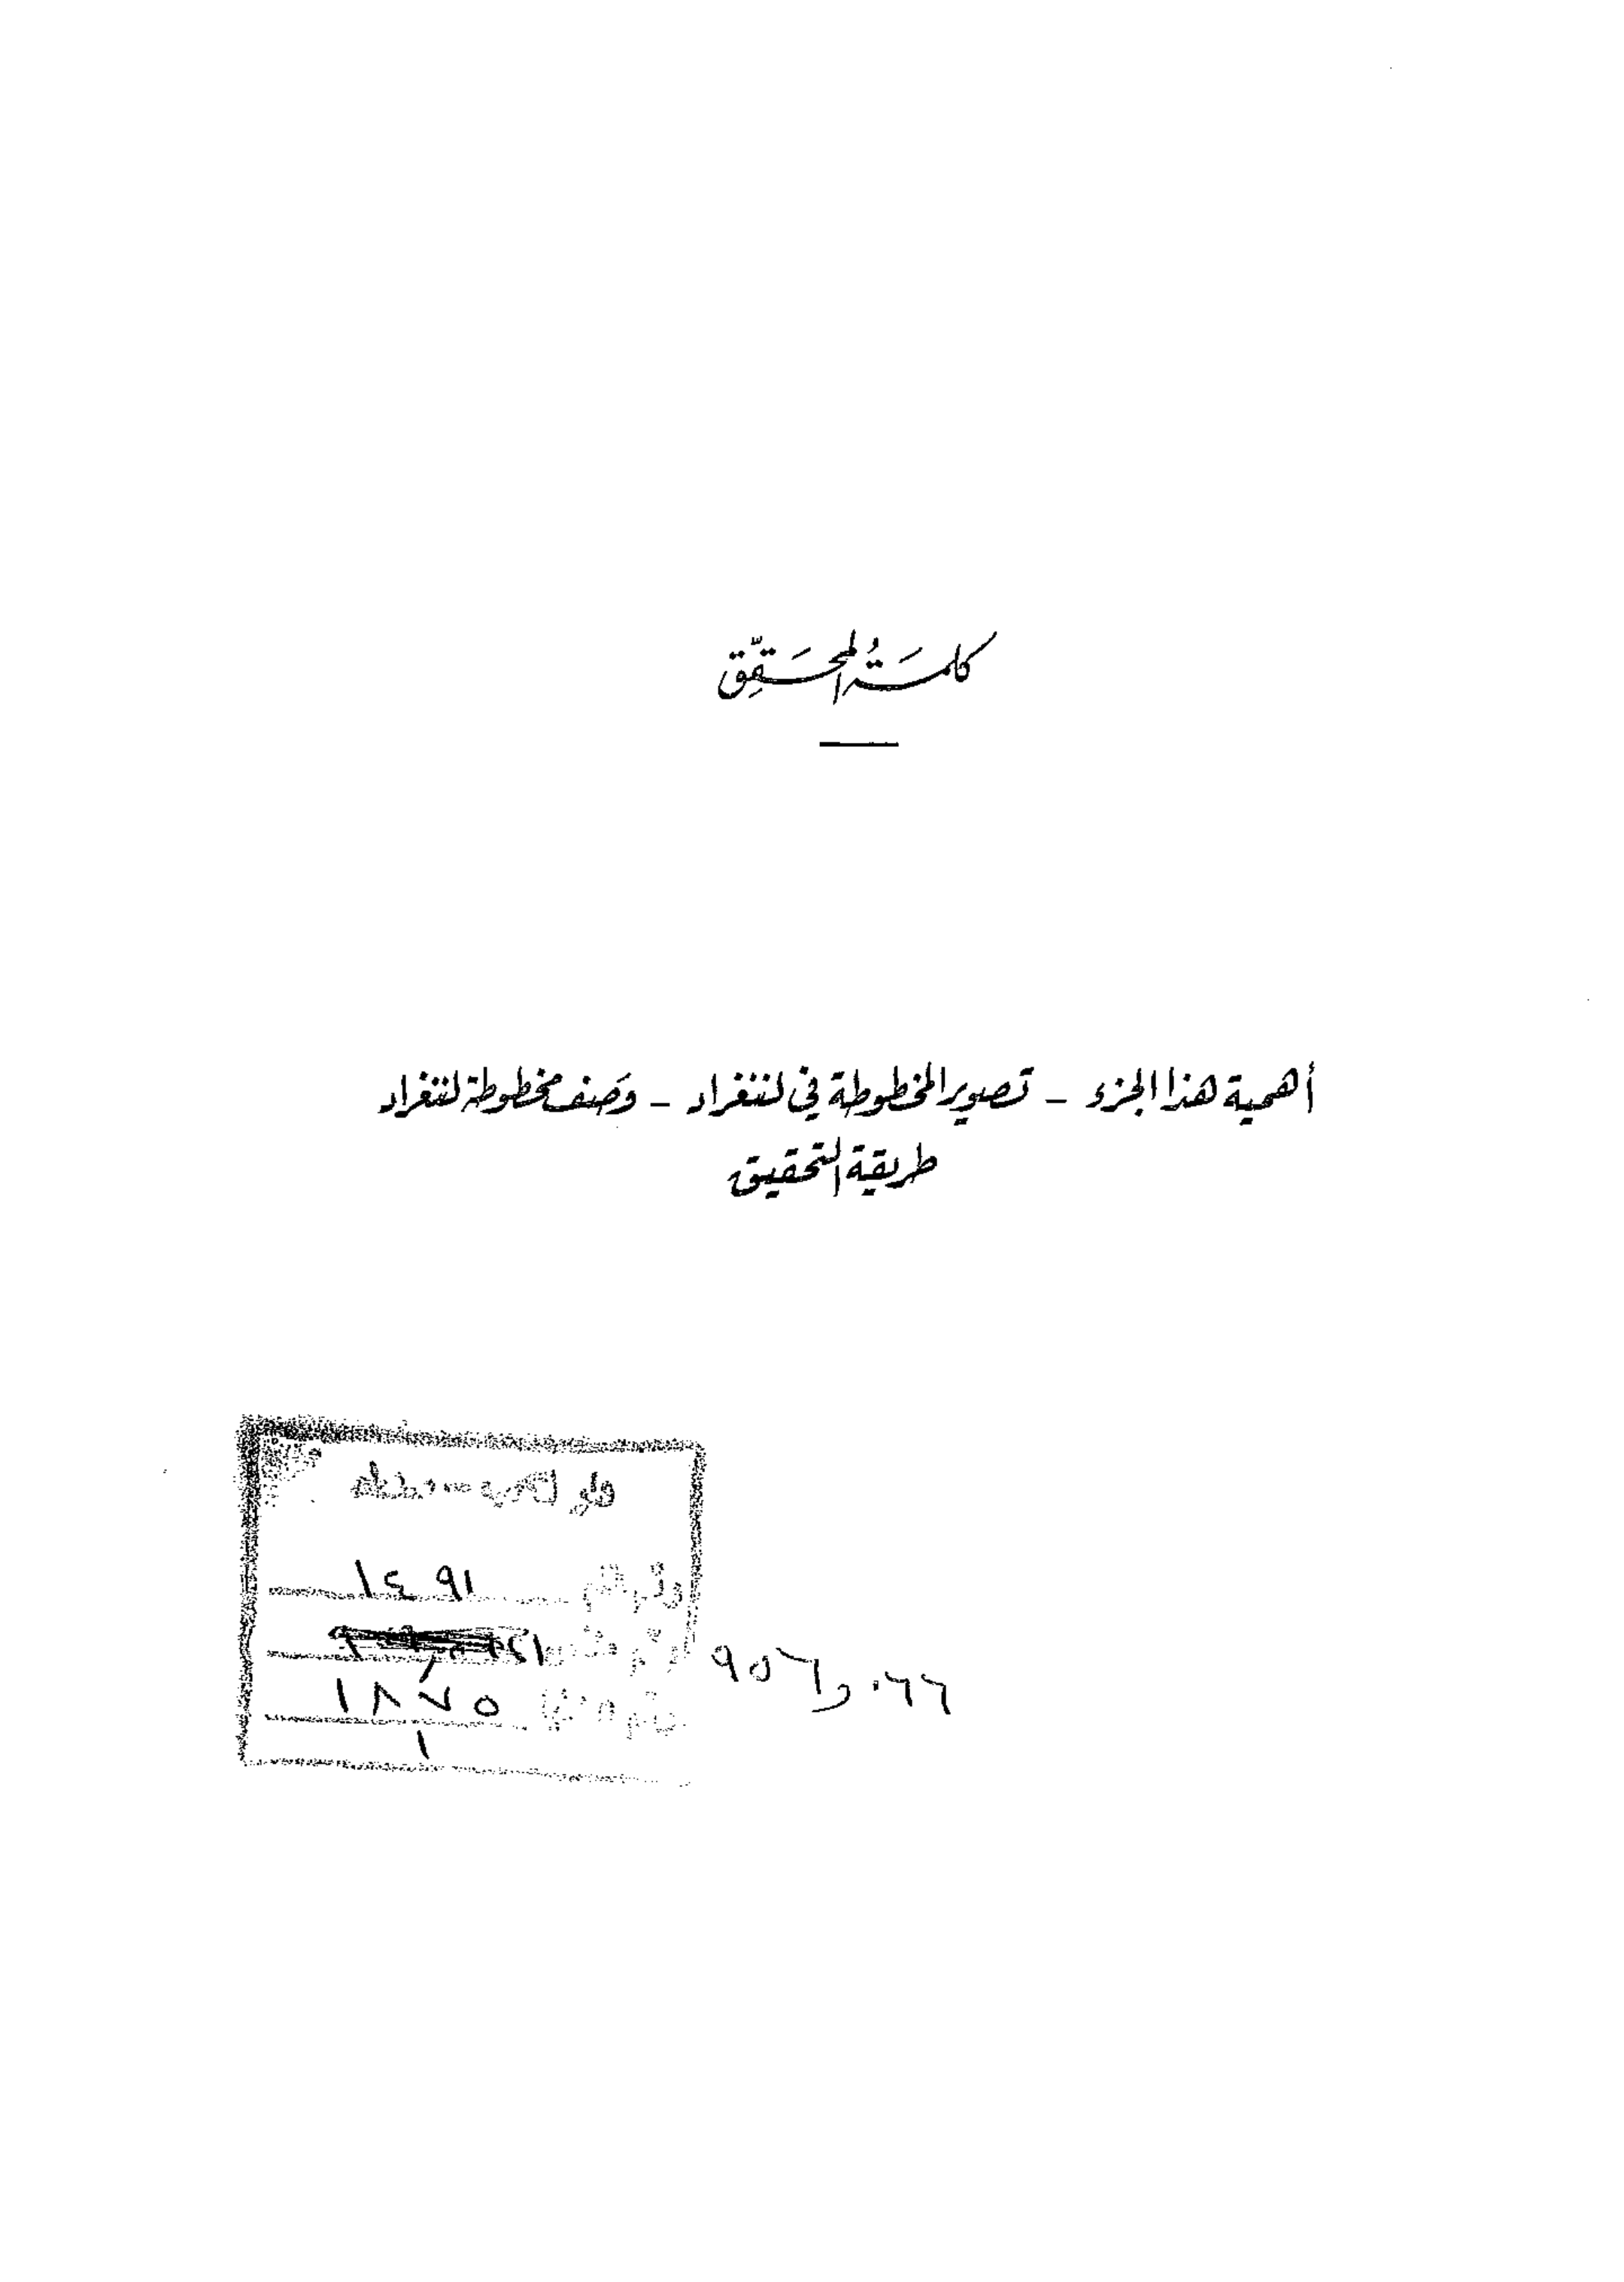 كلمَةُ المحَقِّق
أهمية هذا الجزء - تصوير المخطوطة في لننغراد - وَصف مخطوطة لننغراد
طريقة التحقيق
١٤٩١
٩٥٦٫٠٦٦
١٨٧٥
١